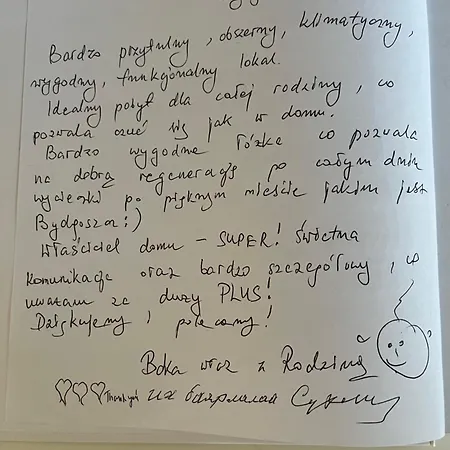 Bardzo przytulny, obszerny, klimatyczny,
wygodny, funkcjonalny lokal.
Idealny pobyt dla całej rodziny, co
pozwala czuć się jak w domu.
Bardzo wygodne łóżko co pozwala
na dobrą regenerację po całym dniu
wycieczki po pięknym mieście jakim jest
Bydgoszcz :)
Właściciel domu - SUPER! Świetna
komunikacja oraz bardzo szczegółowy, co
uważam za duży PLUS!
Dziękujemy i polecamy!
wraz z Rodziną
Thank you